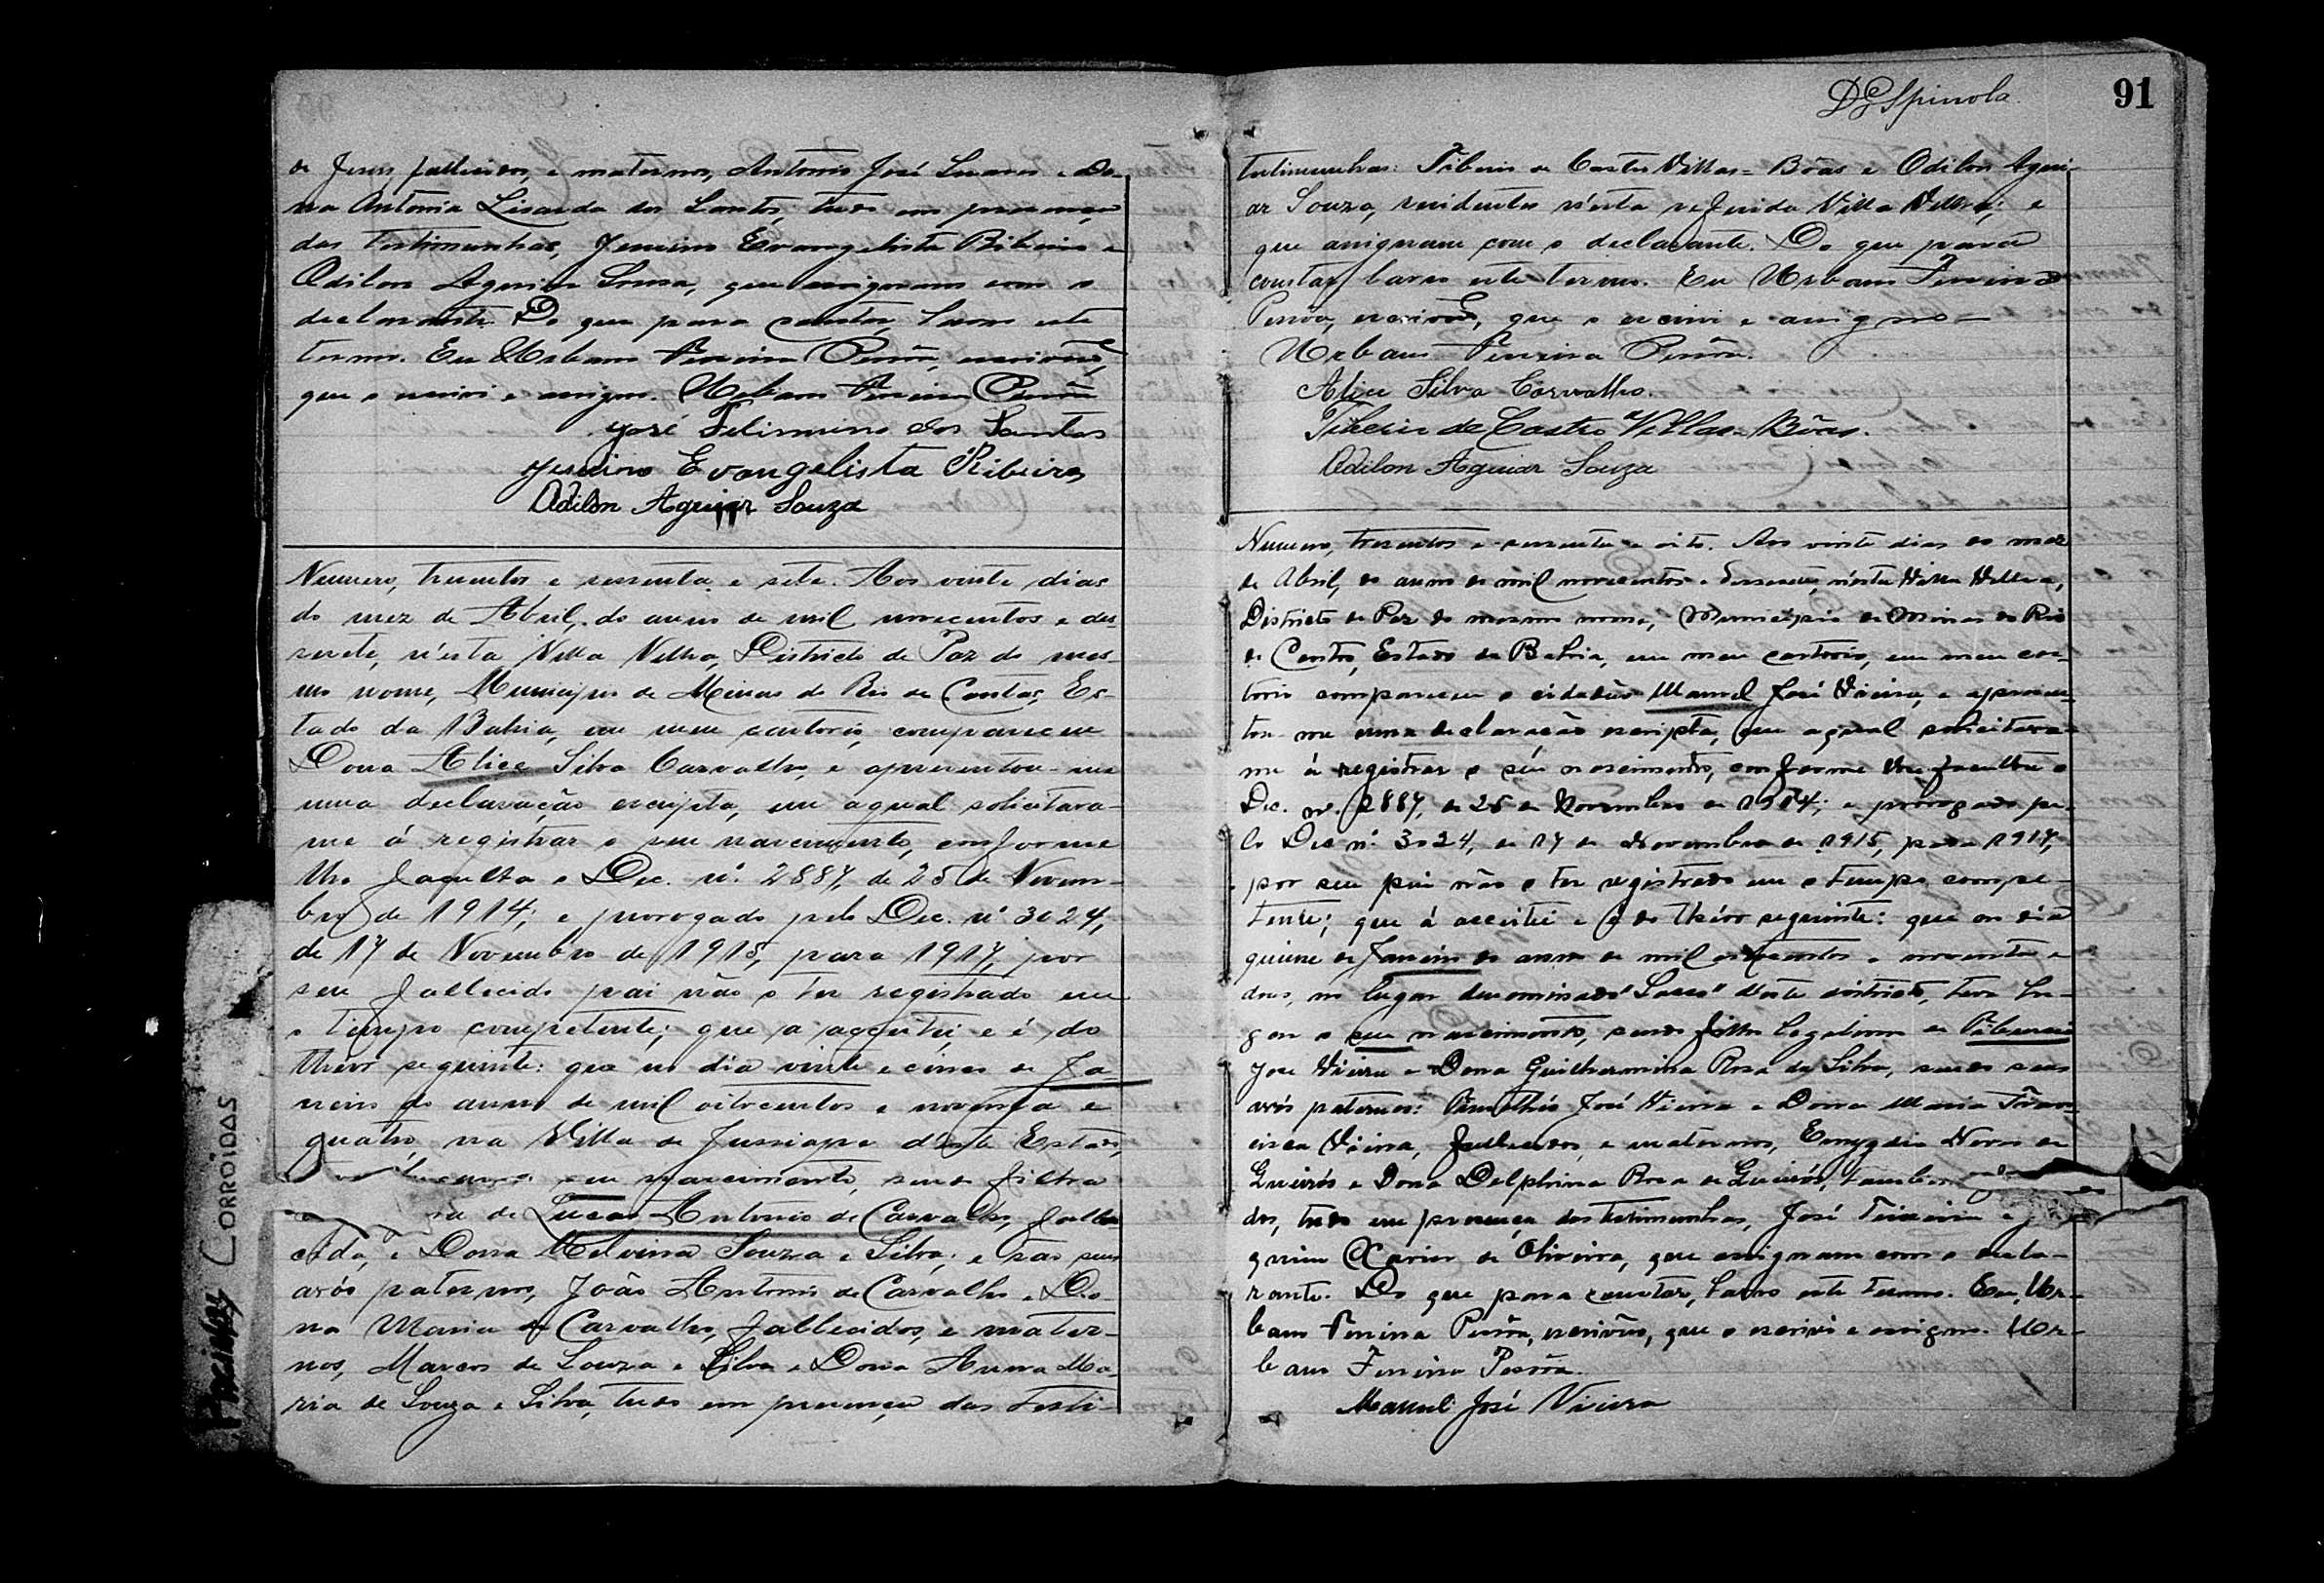 de Jesus fallecidos, e maternos, Antonio José Soares e Do-
na Antonia Lisarda dos Santos, tudo em presença
das testimunhas, Jesuino Evangelista Ribeiro e
Odilon Aguiar Souza, que assignaram com o
declarante. Do que para constar, lavro este
termo. Eu Urbano Ferreira Pessôa, escrivão,
que o escrivi e assigno. Urbano Ferreira Pessôa
José Felismino dos Santos
Jesuino Evangelista Ribeiro
Odilon Aguiar Souza
Numero, trezentos e sessenta e sete. Aos vinte dias
do mez de Abril, do anno de mil novecentos e des-
sesete, n'esta Villa Velha, Districto de Paz do mes-
mo nome, Municipio de Minas do Rio de Contas, Es-
tado da Bahia, em meu cartorio, compareceu
Dona Alice Silva Carvalho, e apresentou-me
uma declaração escripta, em a qual solicitava-
me á registrar o seu nascimento, conforme
lhe faculta o Dec. nº 2887, de 25 de Novem-
bro de 1914; e prorogado pelo Dec. nº 3024,
de 17 de Novembro de 1915, para 1917, por
seu fallecido pai não o ter registrado em
o tempo competente; que a acceitei, e é do
theor seguinte: que no dia vinte e cinco de Ja-
neiro do anno de mil oitocentos e noventa e
quatro, na Villa de Jussiape deste Estado,
seu nascimento, sendo filha
de Lucas Antonio de Carvalho, falle
cido, e Dona Melvina Souza e Silva; e são seus
avós paternos, João Antonio de Carvalho e Do-
na Maria de Carvalho, fallecidos, e mater-
nos, Marcos de Souza e Silva e Dona Anna Ma-
ria de Souza e Silva, tudo em presença das testi-
DGSpinola
91
testimunhas: Tiberio de Castro Villas-Bôas e Odilon Agui-
ar Souza, residentes n'esta referida Villa Velha; e
que assignam com o declarante. Do que para
constar lavro este termo. Eu Urbano Ferreira
Pessôa, escrivão, que o escrivi e assigno
Urbano Ferreira Pessôa.
Alice Silva Carvalho.
Tiberio de Castro Villas-Bôas.
Odilon Aguiar Souza
Numero, trezentos e sessenta e oito. Aos vinte dias do mez
de Abril, do anno de mil novecentos e dessesete, n'esta Villa Velha,
Districto de Paz do mesmo nome, Municipio de Minas do Rio
de Contas, Estado da Bahia, em meu cartorio, em meu car-
torio compareceu o cidadão Manoel José Vieira, e apresen-
tou-me uma declaração escripta, em a qual solicitava-
me á registrar o seu nascimento, conforme lhe faculta o
Dec. nº 2887, de 25 de Novembro de 1914; e prorogado pe-
lo Dec nº 3024, de 17 de Novembro de 1915, para 1917,
por seu pai não o ter registrado em o tempo compe-
tente; que á acceitei e é do theor seguinte: que em dia
quinze de Janeiro do anno de mil oitocentos e noventa e
dous, no lugar denominado deste districto, teve lu-
gar o seu nascimento, sendo filho legitimo de Tiburcio
José Vieira e Dona Guilhermina Rosa da Silva, sendo seus
avós paternos: Timothio José Vieira e Dona Maria Fran-
cisca Vieira, fallecidos, e maternos, Emygdio Neves de
Queirós e Dona Delphina Rosa de Queirós, tambem
dos, tudo em presença das testimunhas, José Teixeira e
quim Xavier de Oliveira, que assignam com o decla-
rante. Do que para constar, lavro este termo. Eu, Ur-
bano Ferreira Pessôa, escrivão, que o escrivi e assigno. Ur-
bano Ferreira Pessôa.
Manuel José Vieira
PAGINAS CORROIDAS